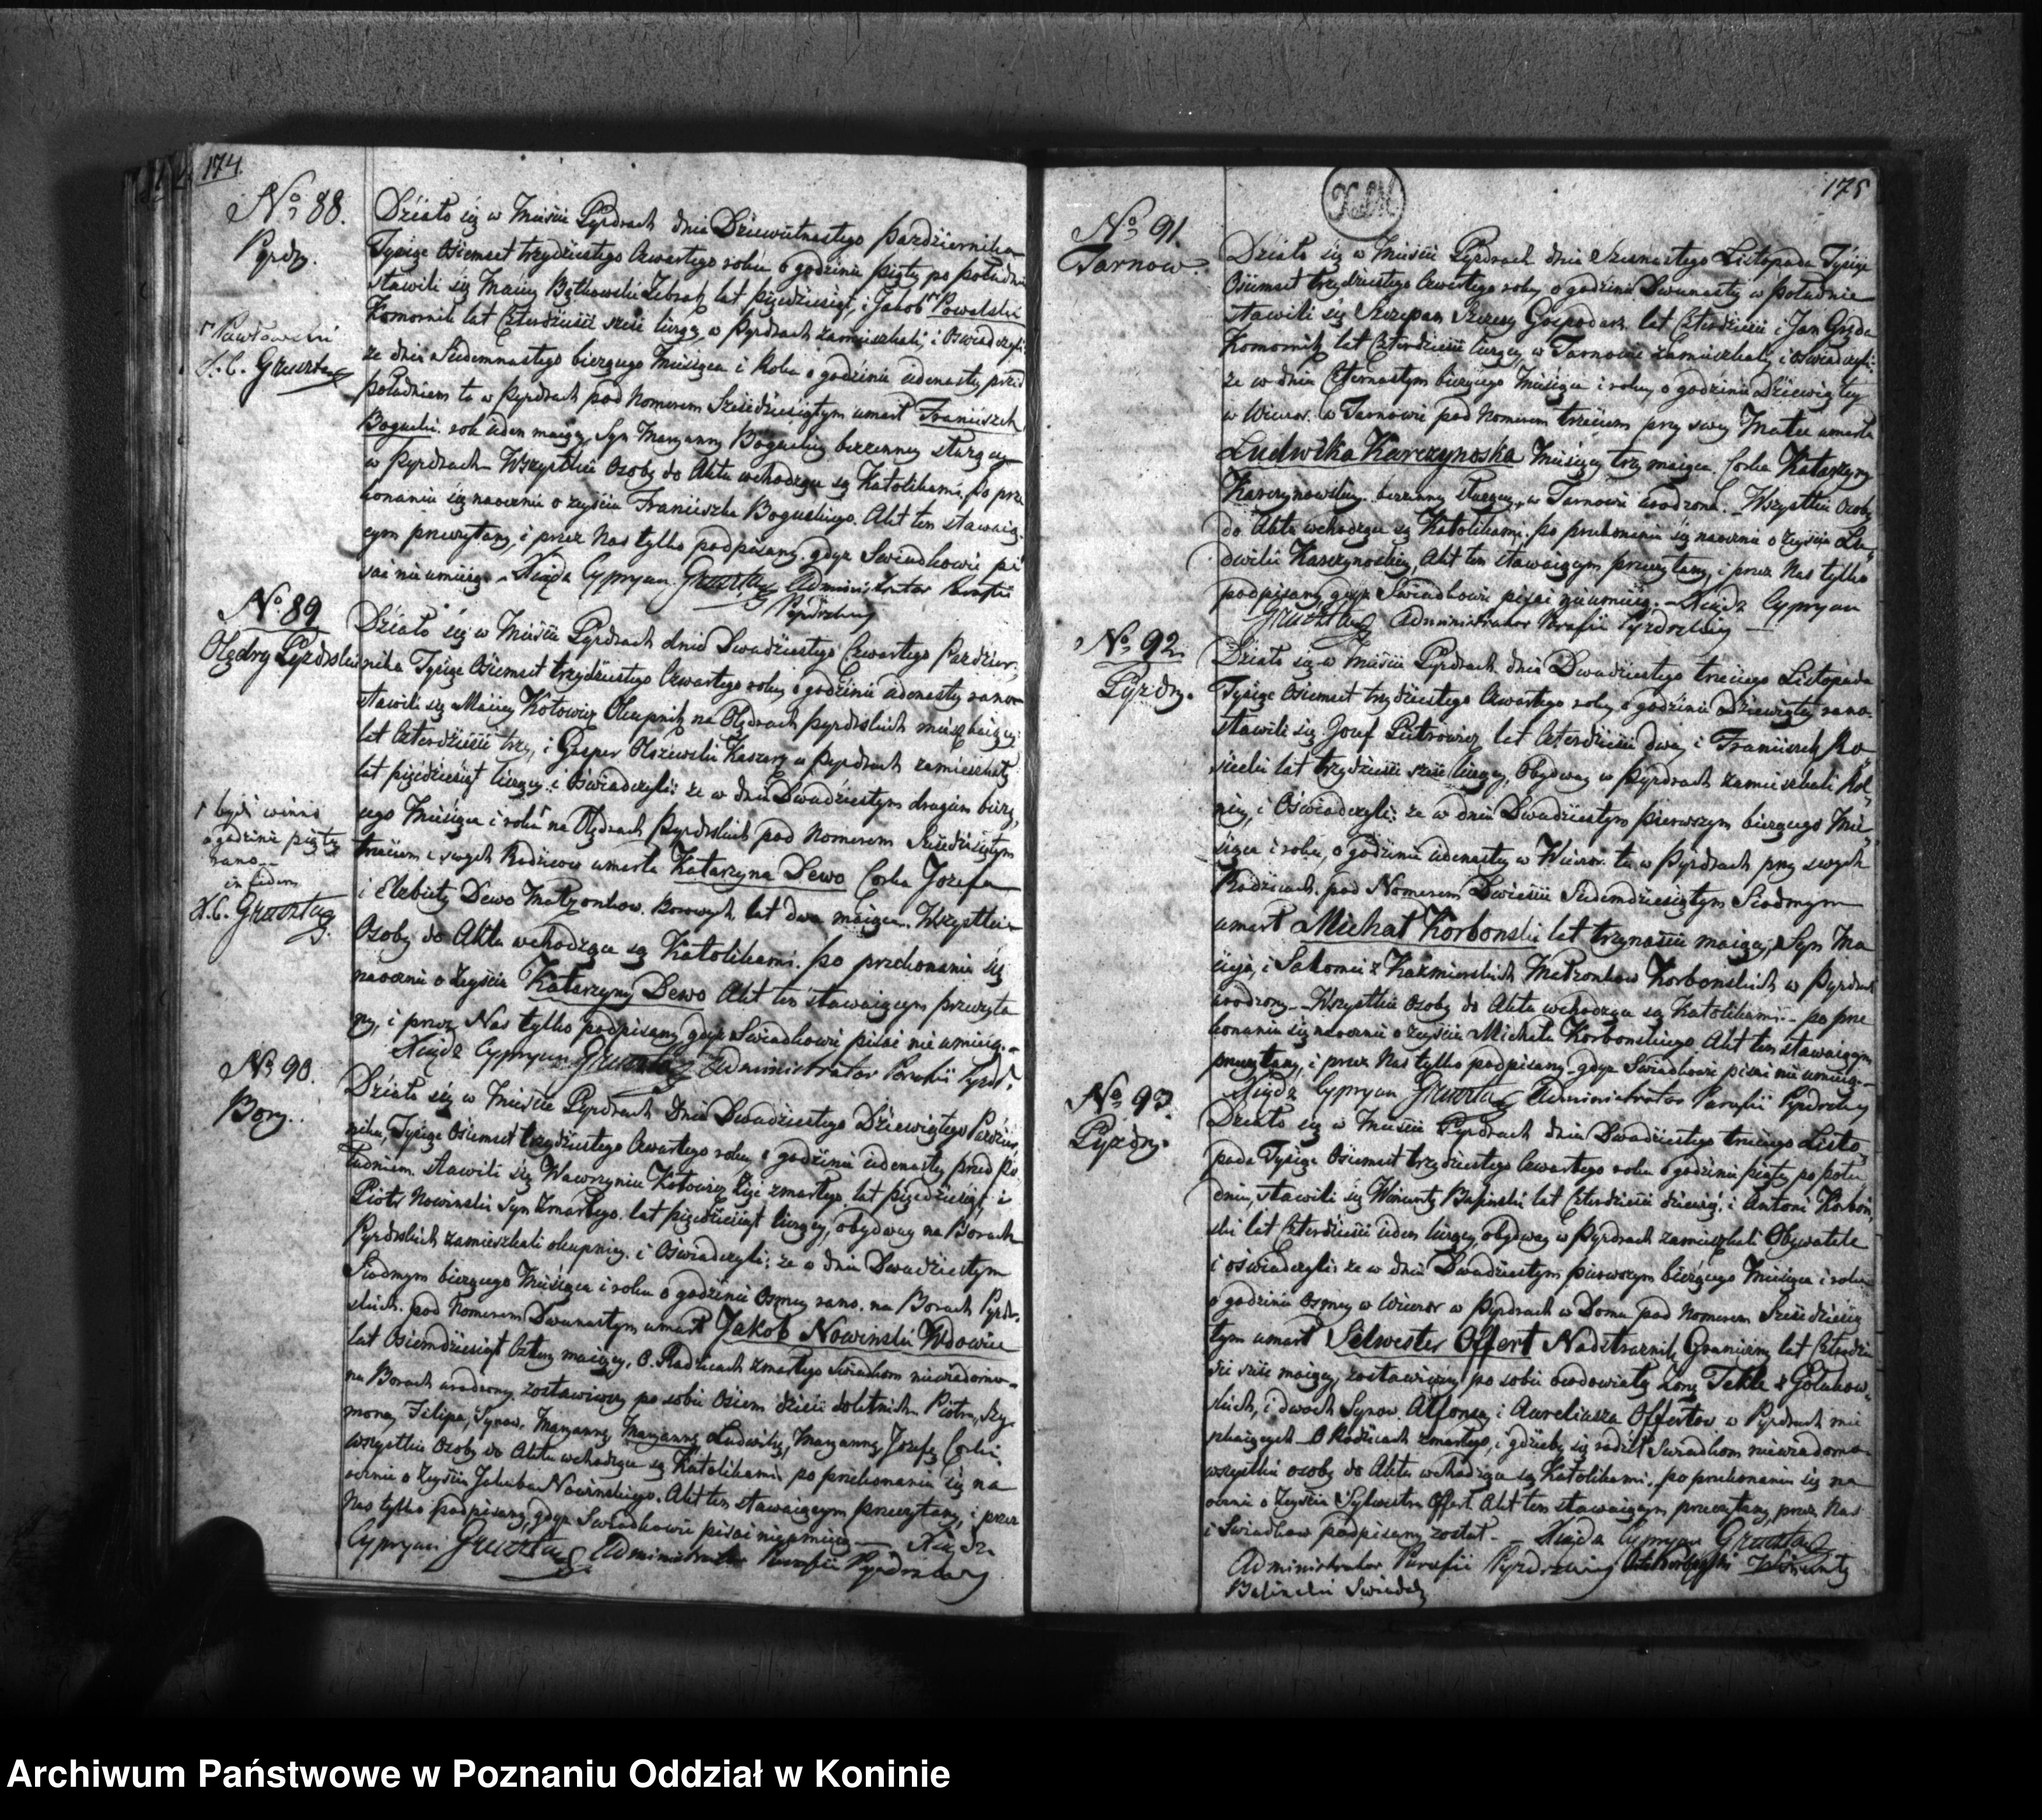 174
No 88.
Pyzdry.
Działo się w Mieście Pyzdrach dnia Dziewiętnastego Października
Tysiąc Osiemset trzydziestego Czwartego roku o godzinie piąty po południu
stawili się Maciey Żebrak lat pięćdziesiąt, i Jakob Powalski
Komornik lat Czterdzieści sześć liczący, w Pyzdrach zamieszkali, i Oświadczyli
Pawłowski
X. C. Grusztas
że dnia Siedemnastego bieżącego Miesiąca i Roku o godzinie iedenasty przed
południem tu w Pyzdrach pod Nomerem Sześćdziesiątym umarł Franciszek
Bogucki rok ieden maiący, Syn Maryanny Bogucki bezzenney służący
w Pyzdrach Wszystkie Osoby do Aktu wchodzące są Katolikami, Po prze
konaniu się naocznie o zeyściu Franciszka Boguckiego. Akt ten stawaią
cym przeczytany, i przez Nas tylko podpisany, gdyż Świadkowie pi
sać nie umieią. Xiądz Cypryan Grusztas Administrator Parafii
Pyzdrskiey
No 89
Olędry Pyzdrskie
Działo się w Mieście Pyzdrach dnia Dwudziestego Czwartego Paździer
nika Tysiąc Osiemset trzydziestego Czwartego roku, o godzinie iedenasty rano
stawili się Maciey Kotowicz Okupnik na Olędrach pyzdrskich mieszkaiący
lat Czterdzieści trzy, i Gasper Olszewski w Pyzdrach zamieszkały
lat pięćdziesiąt liczący, i Oświadczyli: że w dniu Dwudziestym drugim bieżą
cego Miesiąca i roku na Olędrach Pyzdrskich pod Nomerem Sześćdziesiątym
być winno
o godzinie piąty
rano
X. C. Grusztas
trzecim u swych Rodziców umarła Katarzyna Dewo Corka Jozefa
i Elzbiety Dewo Małżonkow lat dwa maiąca. Wszystkie
Osoby do Aktu wchodzące są Katolikami. Po przekonaniu się
naocznie o zeyściu Katarzyny Dewo Akt ten stawaiącym przeczyta
ny, i przez Nas tylko podpisany, gdyż Świadkowie pisać nie umieią.
Xiądz Cypryan Grusztas Administrator Parafii Pyzdr.
No 90.
Bory.
Działo się w Mieście Pyzdrach Dnia Dwudziestego Dziewiątego Paździer
nika, Tysiąc Osiemset trzydziestego Czwartego roku, o godzinie iedenasty przed po
łudniem. stawili się Wawrzyniec Kotowicz Zięć zmarłego, lat pięćdziesiąt, i
Piotr Nowinski Syn Zmarłego. lat pięćdziesiąt liczący, obydway na Borach
Pyzdrskich zamieszkali okupnicy. i Oświadczyli; że o dniu Dwudziestym
Siodmym bieżącego Miesiąca i roku o godzinie Osmey rano. na Borach Pyzdr
skich. pod Nomerem Dwunastym umarł Jakob Nowinski Wdowiec
lat Osiemdziesiąt Cztery maiący, O Rodzicach zmarłego Świadkom niewiadomo
na Borach urodzony. zostawiwszy po sobie Osiem dzieci doletnich Piotra, Szy
mona, Filipa, Synow, Maryannę, Maryannę Ludwikę, Maryannę, Jozefę Corki.
wszystkie Osoby do Aktu wchodzące są Katolikami po przekonaniu się na
ocznie o zeyściu Jakuba Nowinskiego. Akt ten stawaiącym przeczytany, i przez
Nas tylko podpisany, gdyż Świadkowie pisać nieumieią Xiądz
Cypryan Grusztas Administrator Parafii Pyzdrskiey
175
No 91.
Tarnow.
Działo się w Mieście Pyzdrach dnia Szesnastego Listopada Tysiąc
Osiemset trzydziestego Czwartego roku, o godzinie Dwunasty w południe
stawili się Szczepan Szczesy Gospodarz lat Czterdzieści i Jan Gręda
Komornik, lat Czterdzieści liczący, w Tarnowie zamieszkali, i oświadczyli:
że w dniu Czternastym bieżącego Miesiąca i roku, o godzinie Dziewiąty
w Wieczor w Tarnowie pod Nomerem trzecim przy swey Matce umarła
Ludwika Karczynoska Miesięcy trzy maiąca. Corka Katarzyny
Karczynowskiey bezzenny służący, w Tarnowie urodzona. Wszystkie Osoby
do Aktu wchodzące są Katolikami. Po przekonaniu się naocznie o zeyściu Lu
dwiki Karczynoskiey, Akt ten stawaiącym przeczytany, i przez Nas tylko
podpisany, gdyż Świadkowie pisać nieumieią. Xiądz Cypryan
Grusztas Administrator Parafii Pyzdrskiey
No 92.
Pyzdry.
Działo się w Mieście Pyzdrach dnia Dwudziestego trzeciego Listopada
Tysiąc Osiemset trzydziestego Czwartego roku, o godzinie Dziewiąty rano.
stawili się Jozef Pietrowicz lat Czterdzieści dwa, i Franciszek Ko
siecki lat trzydzieści sześć liczący, Obydway w Pyzdrach zamieszkali Rol
nicy, i Oświadczyli: że w dniu Dwudziestym pierwszym bieżącego Mie
siąca i roku, o godzinie iedenasty w Wieczor tu w Pyzdrach przy swych
Rodzicach pod Nomerem Dwieście Siedemdziesiątym Siodmym
umarł Michał Korbonski lat trzynaście maiący, Syn Ma
cieja, i Salomei z Kazmierskich Małżonkow Korbonskich w Pyzdrach
urodzony. Wszystkie Osoby do Aktu wchodzące są Katolikami. po prze
konaniu się naocznie o zeyściu Michała Korbonskiego, Akt ten stawaiącym
przeczytany, i przez Nas tylko podpisany gdyż Świadkowie pisać nie umieią.
Xiądz Cypryan Grusztas Administrator Parafii Pyzdrskiey
No 93.
Pyzdry.
Działo się w Mieście Pyzdrach dnia Dwudziestego trzeciego Listo
pada Tysiąc Osiemset trzydziestego Czwartego roku o godzinie piąty po połu
dniu, stawili się Wincenty Balinski lat Czterdzieści dziewięć, i Antoni Korbon
ski lat Czterdzieści ieden liczący, obydway w Pyzdrach zamieszkali Obywatele
i oświadczyli: że w dniu Dwudziestym pierwszym bieżącego Miesiąca i roku
o godzinie Osmey w Wieczor w Pyzdrach w Domu pod Nomerem Sześćdziesią
tym umarł Silwester Offert Nadstraznik Graniczny lat Czterdzie
ści sześć maiący, zostawiwszy po sobie owdowiałą żonę Teklę z Gołuchow
skich, i dwoch Synow. Alfonsa, i Aureliusza Offertow w Pyzdrach mie
szkaiących O Rodzicach zmarłego, i gdzieby się rodził Świadkom niewiadomo
wszystkie osoby do Aktu wchodzące są Katolikami, po przekonaniu się na
ocznie o zeyściu Sylwestra Offert. Akt ten stawaiącym przeczytany, przez Nas
i Świadkow podpisany został. Xiądz Cypryan Grusztas
Administrator Parafii Pyzdrskiey Wincenty
Balinski Świadek
Archiwum Państwowe w Poznaniu Oddział w Koninie